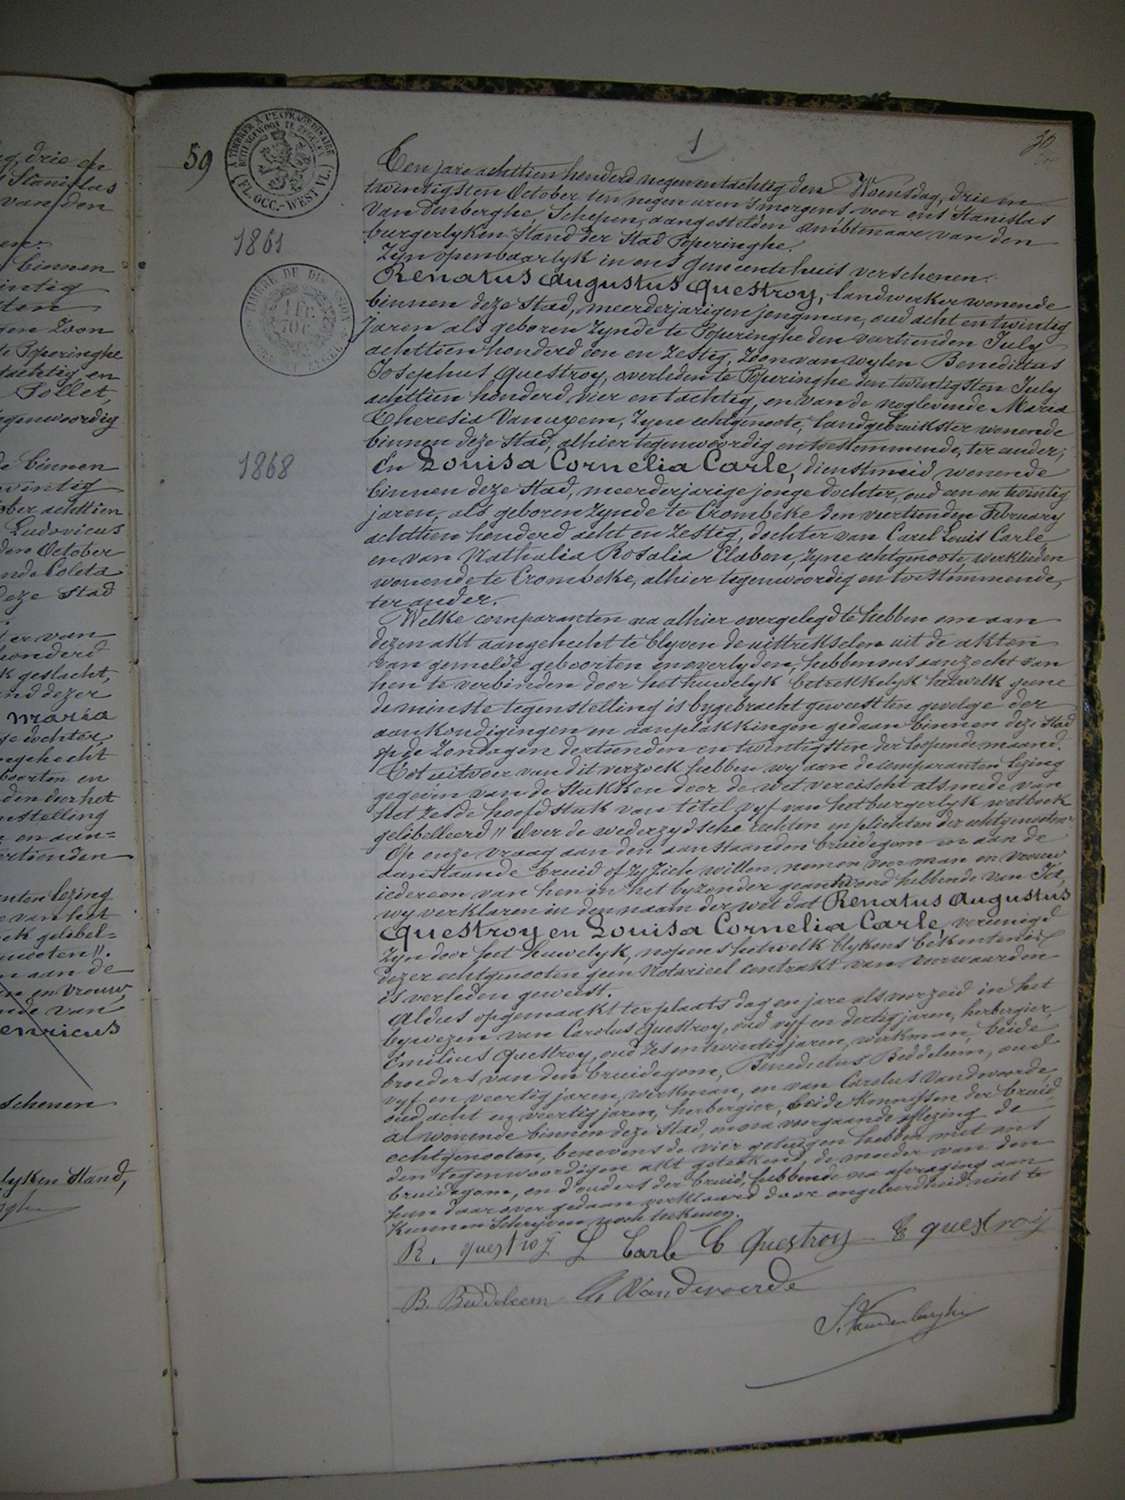 59
1
A TIMBRER A L'EXTRAORDINAIRE
BUITENGEWOON TE ZEGELEN
(FL. OCC.-WEST VL.)
1861
1868
Ten jare achttien honderd negen en tachtig den Woensdag, drie en
twintigsten October ten negen uren s'morgens voor ons Stanislas
Vandenberghe, Schepen, aangestelden ambtenaar van den
burgerlyken stand der Stad Poperinghe.
Zyn openbaarlyk in ons Gemeentehuis verschenen:
Renatus Augustus Questroy, landwerker wonende
binnen deze stad, meerderjarigen jongman, oud acht en twintig
Jaren als geboren zynde te Poperinghe den veertienden July
achttien honderd een en zestig, Zoon van wylen Benedictus
Josephus Questroy, overleden te Poperinghe den twintigsten July
achttien honderd vier en tachtig, en van de noglevende Maria
Theresia Vanuxem, Zyne echtgenoote, landgebruikster wonende
binnen deze stad, alhier tegenwoordig en toestemmende, ter ander;
En Louisa Cornelia Carle, dienstmeid, wonende
binnen deze stad, meerderjarige jonge dochter, oud een en twintig
jaren, als geboren zynde te Crombeke den veertienden February
achttien honderd acht en zestig, dochter van Carel Louis Carle
en van Nathalia Rosalia Claben, zyne echtgenoote, werklieden
wonende te Crombeke, alhier tegenwoordig en toestemmende,
ter ander.
Welke comparanten na alhier overgelegd te hebben om aan
dezen akt aangehecht te blyven de uittrekselen uit de akten
van gemelde geboorten en overlyden, hebben ons aanzocht van
hen te verbinden door het huwelyk betrekkelyk hetwelk geene
de minste tegenstelling is bygebracht geweest ten gevolge der
aankondigingen en aanplakkingen gedaan binnen deze Stad
op de Zondagen dertienden en twintigsten der loopende maand.
Tot uitvoer van dit verzoek hebben wy aan de comparanten lezing
gegeven van de stukken door de wet vereischt alsmede van
het zesde hoofdstuk van titel vyf van het burgerlyk wetboek
gelibelleerd "Over de wederzydsche rechten en plichten der echtgenooten"
Op onze vraag aan den aanstaanden bruidegom en aan de
aanstaande bruid of zy zich willen nemen voor man en vrouw
iedereen van hen in het byzonder geantwoord hebbende van Ja,
wy verklaren in den naam der wet dat Renatus Augustus
Questroy en Louisa Cornelia Carle, vereenigd
zyn door het huwelyk, nopens hetwelk blykens bekentenis
dezer echtgenooten geen Notarieel contrakt van voorwaarden
is verleden geweest.
Aldus opgemaakt ter plaats dag en jare als voorzeid in het
bywezen van Carolus Questroy, oud vyf en dertig jaren, herbergier,
Emilius Questroy, oud zes en twintig jaren, werkman, beide
broeders van den bruidegom, Benedictus Beddeleem, oud
vyf en veertig jaren, werkman, en van Carolus Vandevoorde,
oud acht en veertig jaren, herbergier, beide kennissen der bruid,
al wonende binnen deze stad, en na voorgaande aflezing de
echtgenooten, benevens de vier getuigen hebben met ons
den tegenwoordigen akt geteekend, de moeder van den
bruidegom, en d'ouders der bruid, hebbende na afvraging aan
hun daar over gedaan verklaard door ongeleerdheid niet te
kunnen schryven noch teekenen.
R. questroij L Carle C Questroy E questroij
B. Beddeleem Ch Vandevoorde
S. Vandenberghe